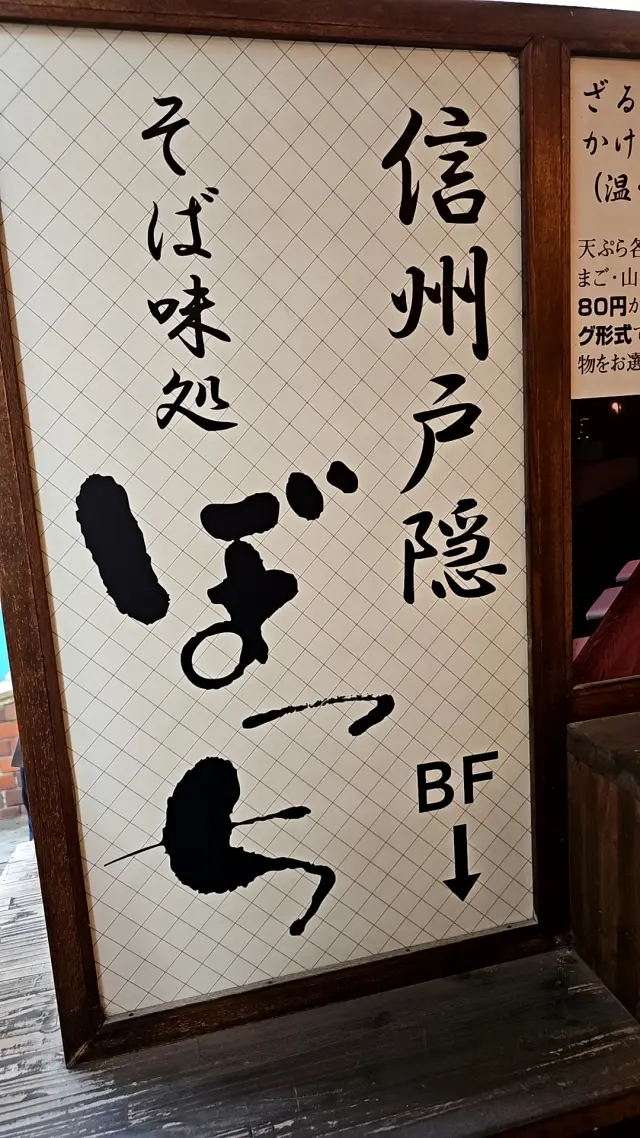 信州戸隠
そば味処
ぼっち
BF
↓
ざる
かけ
(温・
天ぷら各
まご・山
80円か
グ形式で
物をお選